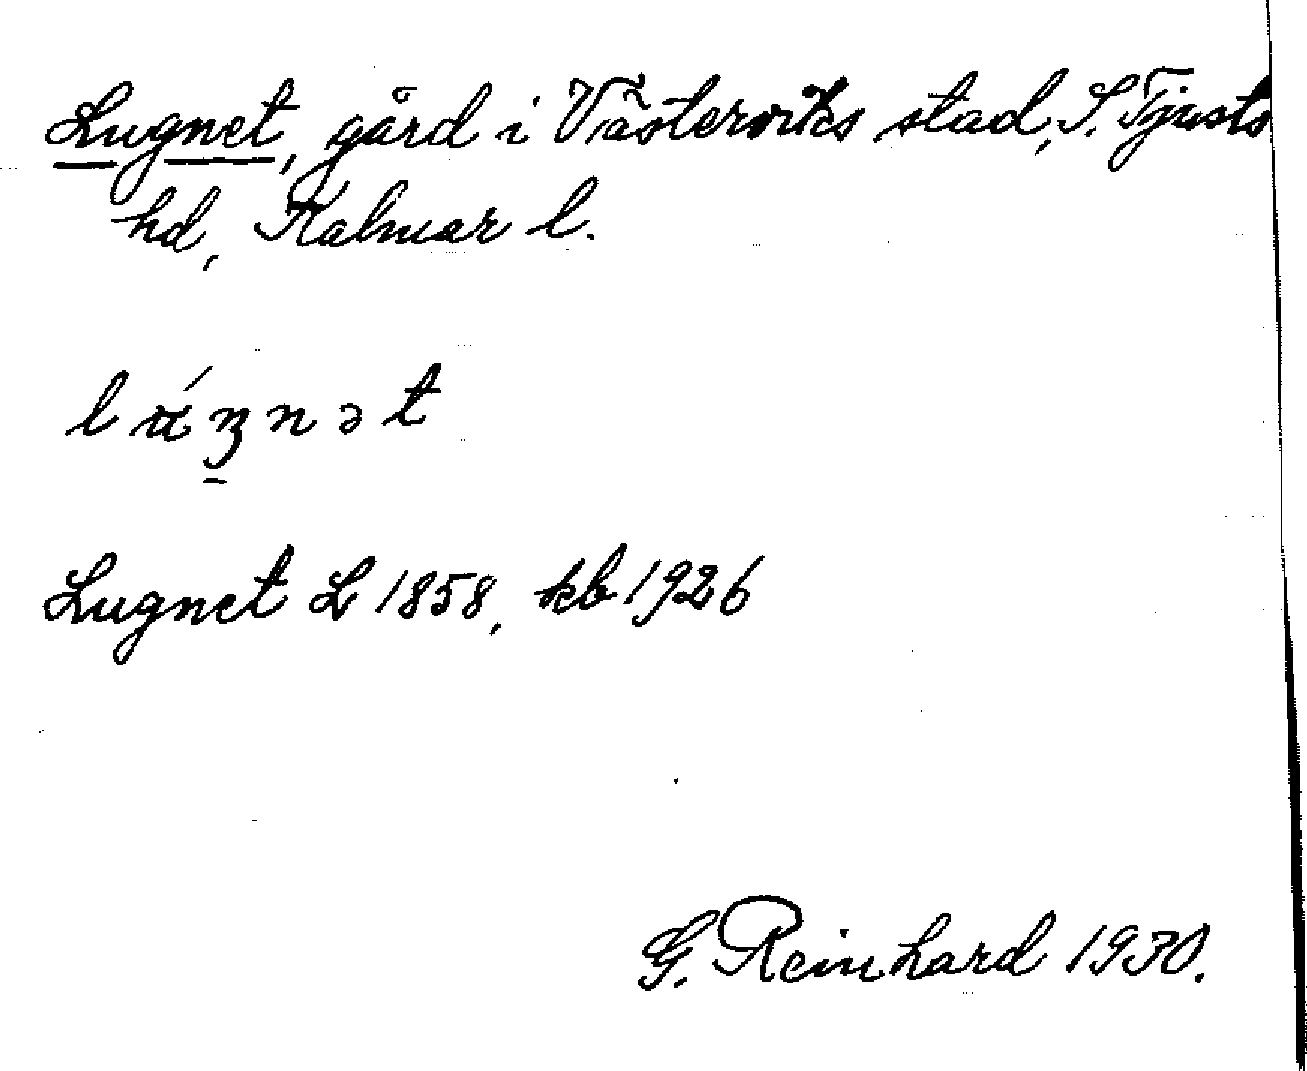 Lugnet, gård i Västerviks stad, S. Tjusts
hd, Kalmar l.
Lugnet L 1858, kb 1926
G. Reinhard 1930.